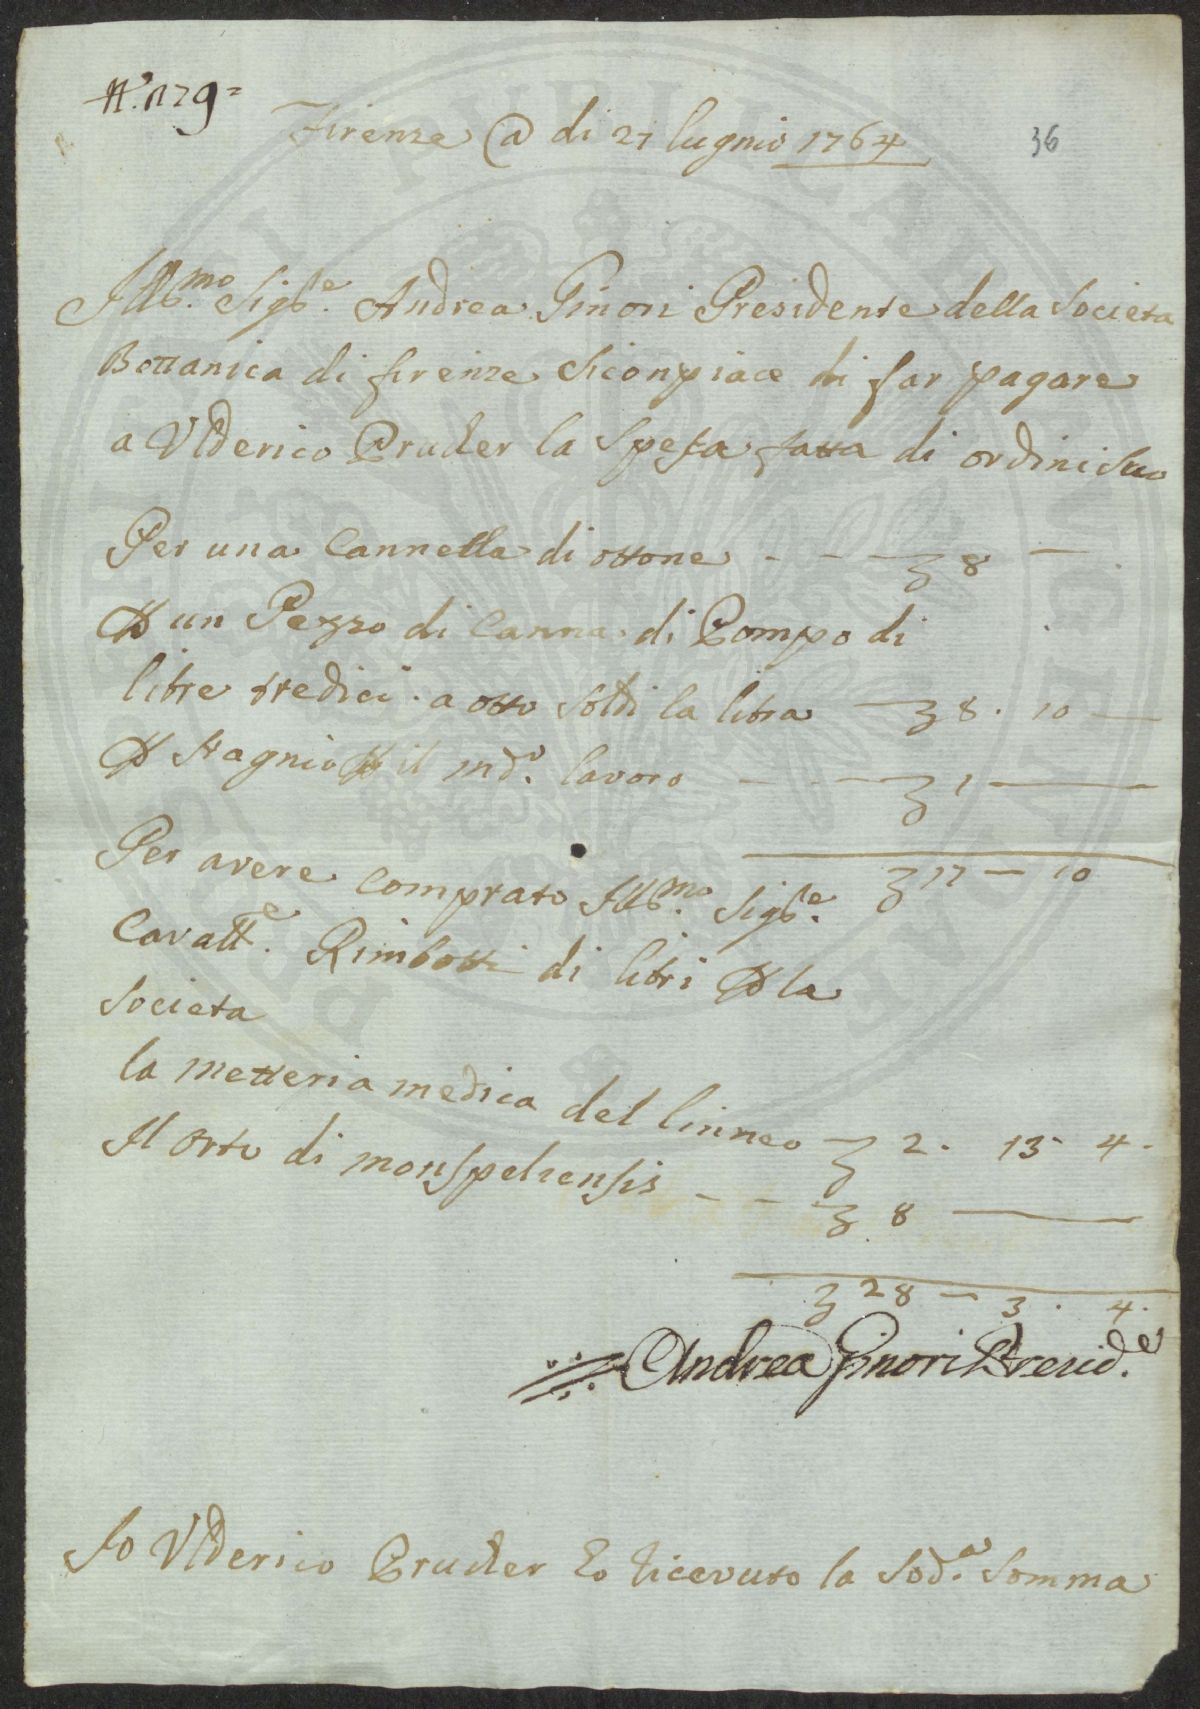 N.° 179=
36
Firenze @ di 27 lugnio 1764
Ill:mo Sig:re Andrea Ginori Presidente della Societa
Bottanica di firenze Si conpiace di far pagare
a Ulderico Pruker la Spesa fatta di ordini Suo
Per una Cannella di ottone - - — 8 —
P un Pezzo di Canna di Pompo di
libre tredici a otto Soldi la libra — 8. 10 —
P Stagnio P il md.o lavoro — — 1 —
17 — 10
Per avere Comprato Ill:mo Sig:re
Cavall:e Rimbotti di libri P la
Societa
la metteria medica del linneo 2. 13 4.
Il Orto di monspeliensis - - — 8 —
28 — 3. 4.
Andrea Ginori Presid.e
Io Ulderico Pruker Ho ricevuto la Sod.a Somma